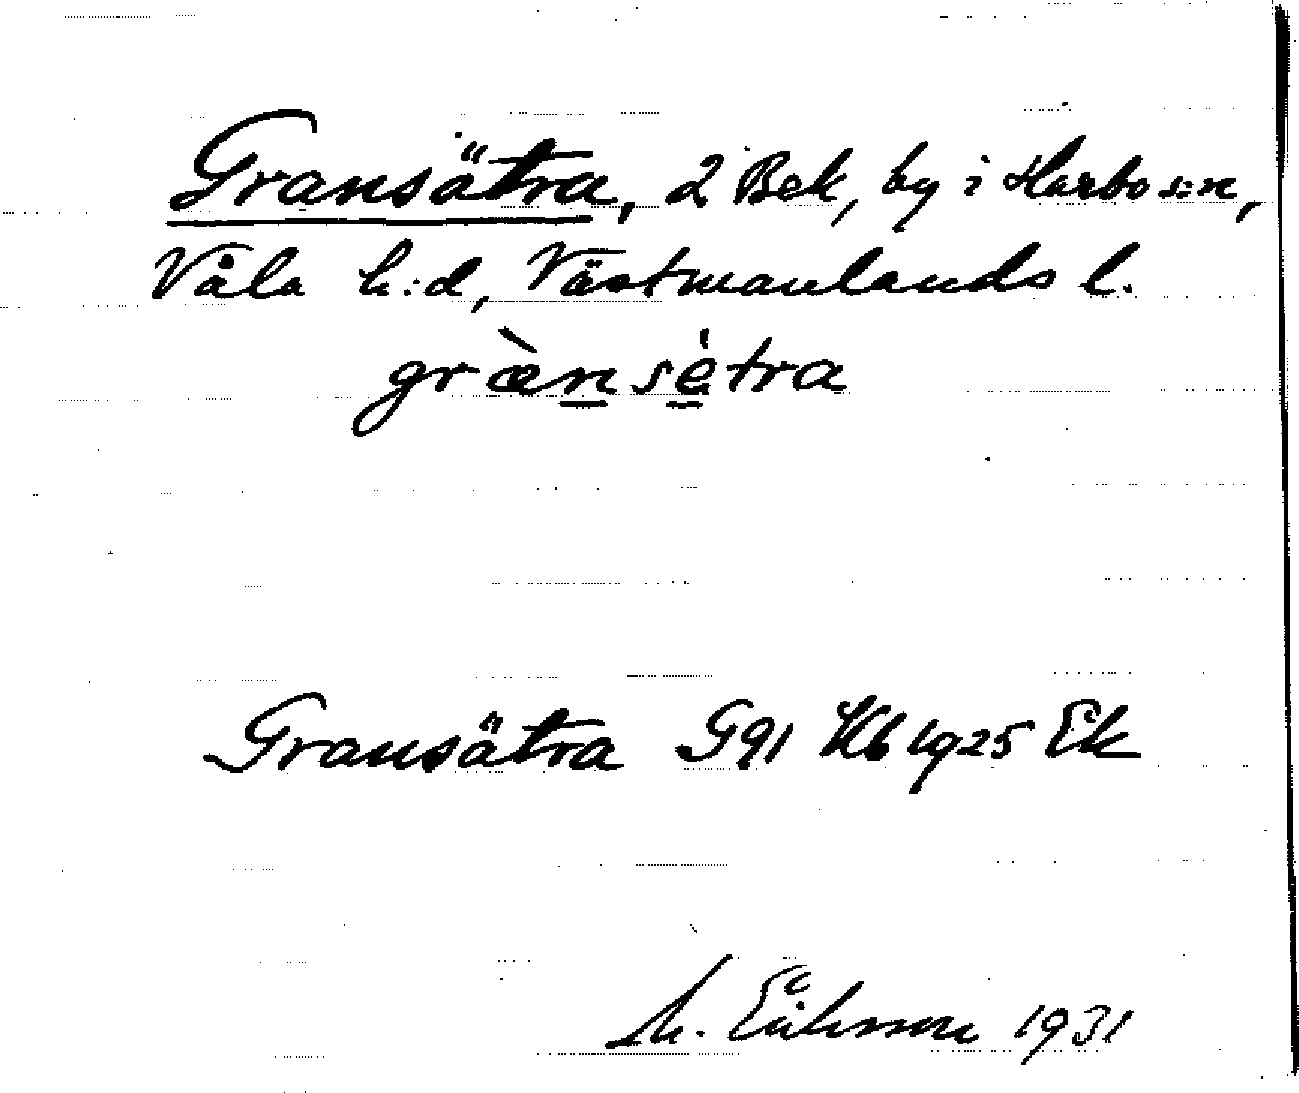 Gransätra, 2 Bek, by i Harbo s:n,
Våla h:d, Västmanlands l.
græ̀nsètra
Gransätra G91 Kb 1925 Ek
M. Eriksson 1931